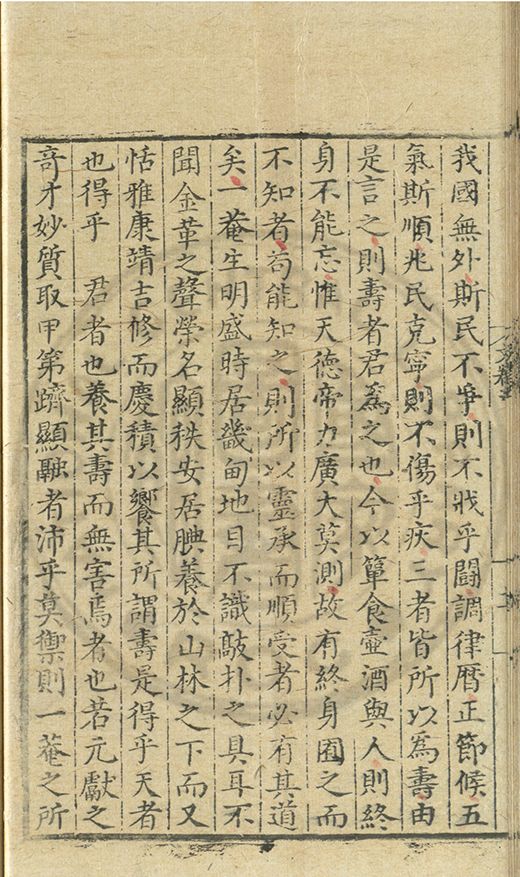 我國無外斯民不爭則不戕乎鬪調律曆正節候五
氣斯順兆民克寧則不傷乎疾三者皆所以為壽由
是言之則壽者君為之也今以簞食壺酒與人則終
身不能忘惟天德帝力廣大莫測故有終身囿之而
不知者苟能知之則所以靈承而順受者必有其道
矣一菴生明盛時居畿甸地目不識敲朴之具耳不
聞金革之聲榮名顯秩安居腆養於山林之下而又
恬雅康靖吉修而慶積以饗其所謂壽是得乎天者
也得乎　君者也養其壽而無害焉者也若元獻之
奇才妙質取甲第躋顯融者沛乎莫禦則一菴之所